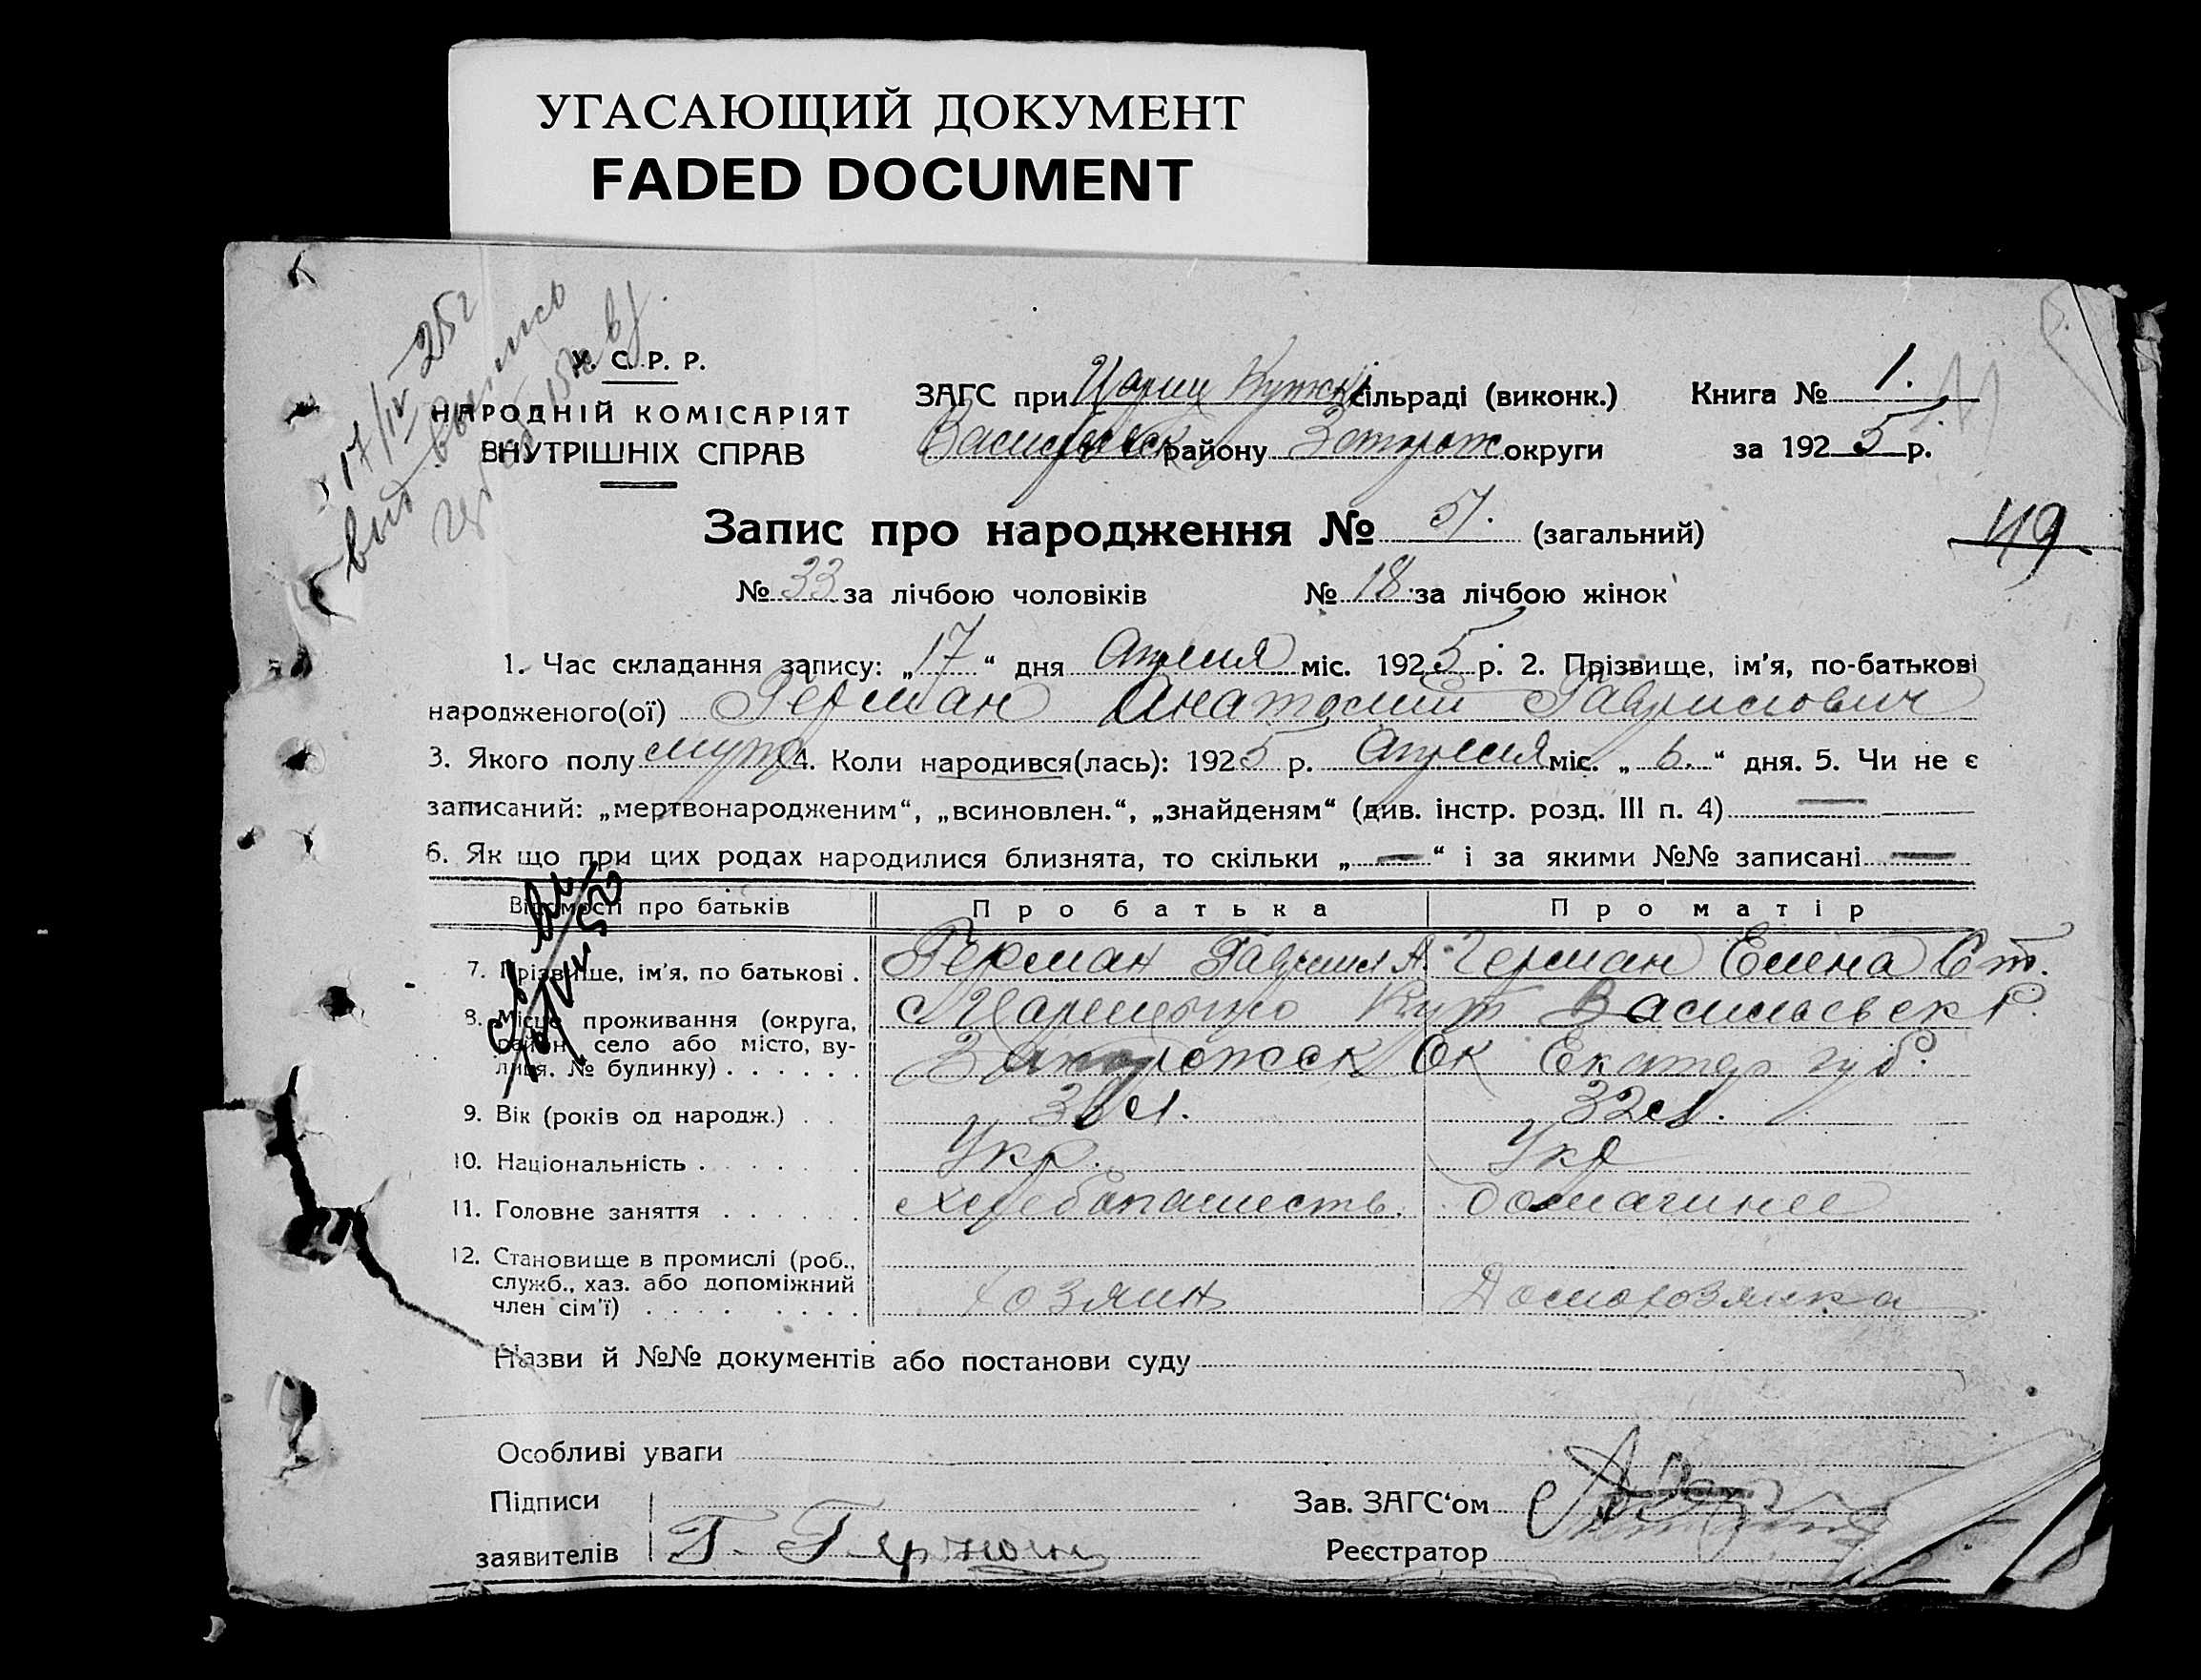 УГАСАЮЩИЙ ДОКУМЕНТ
FADED DOCUMENT
17/IV-25 г
У. С. Р. Р.
НАРОДНІЙ КОМІСАРІЯТ
ВНУТРІШНІХ СПРАВ
ЗАГС при Царице Кутск сільраді (виконк.)
Васильевск району Запорож округи
Книга № 1.
за 1925 р.
49
Запис про народження № 51. (загальний)
№ 33 за лічбою чоловіків № 18 за лічбою жінок
1. Час складання запису: „17“ дня Апреля міс. 1925 р. 2. Прізвище, ім’я, по-батькові
народженого(ої) Герман Анатолий Гаврилович
3. Якого полу муж 4. Коли народився(лась): 1925 р. Апреля міс. „6.“ дня. 5. Чи не є
записаний: „мертвонародженим“, „всиновлен.“, „знайденям“ (див. інстр. розд. III п. 4) —
6. Як що при цих родах народилися близнята, то скільки „—“ і за якими №№ записані —
Відомості про батьків Про батька Про матір
7. Прізвище, ім’я, по батькові . Герман Гаврил А. Герман Елена Ст.
8. Місце проживання (округа, район, село або місто, вулиця, № будинку) . . . . . .
Кут Васильевск Р.
Запорожск Ок Екатер губ.
9. Вік (років од народж.) . . л. 32 л.
10. Національність . . . . . . Укр. Укр
11. Головне заняття . . . . . . Хлебопашеств. домашнее
12. Становище в промислі (роб., служб., хаз. або допоміжний член сім’ї) . . . . . . Хозяин Домохозяйка
Назви й №№ документів або постанови суду
Особливі уваги
Підписи
заявителів Г. Герман
Зав. ЗАГС‘ом
Реєстратор